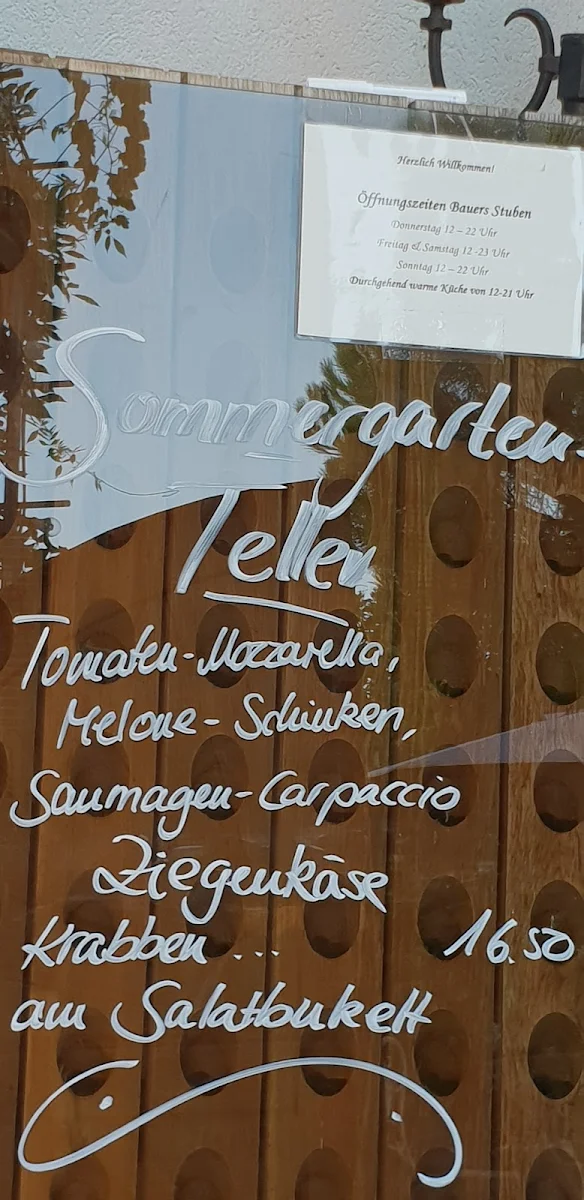 Herzlich Willkommen!
Öffnungszeiten Bauers Stuben
Donnerstag 12 – 22 Uhr
Freitag & Samstag 12 -23 Uhr
Sonntag 12 – 22 Uhr
Durchgehend warme Küche von 12-21 Uhr
Sommergarten-
Teller
Tomaten-Mozzarella,
Melone-Schinken,
Saumagen-Carpaccio
Ziegenkäse
Krabben ... 16.50
am Salatbukett